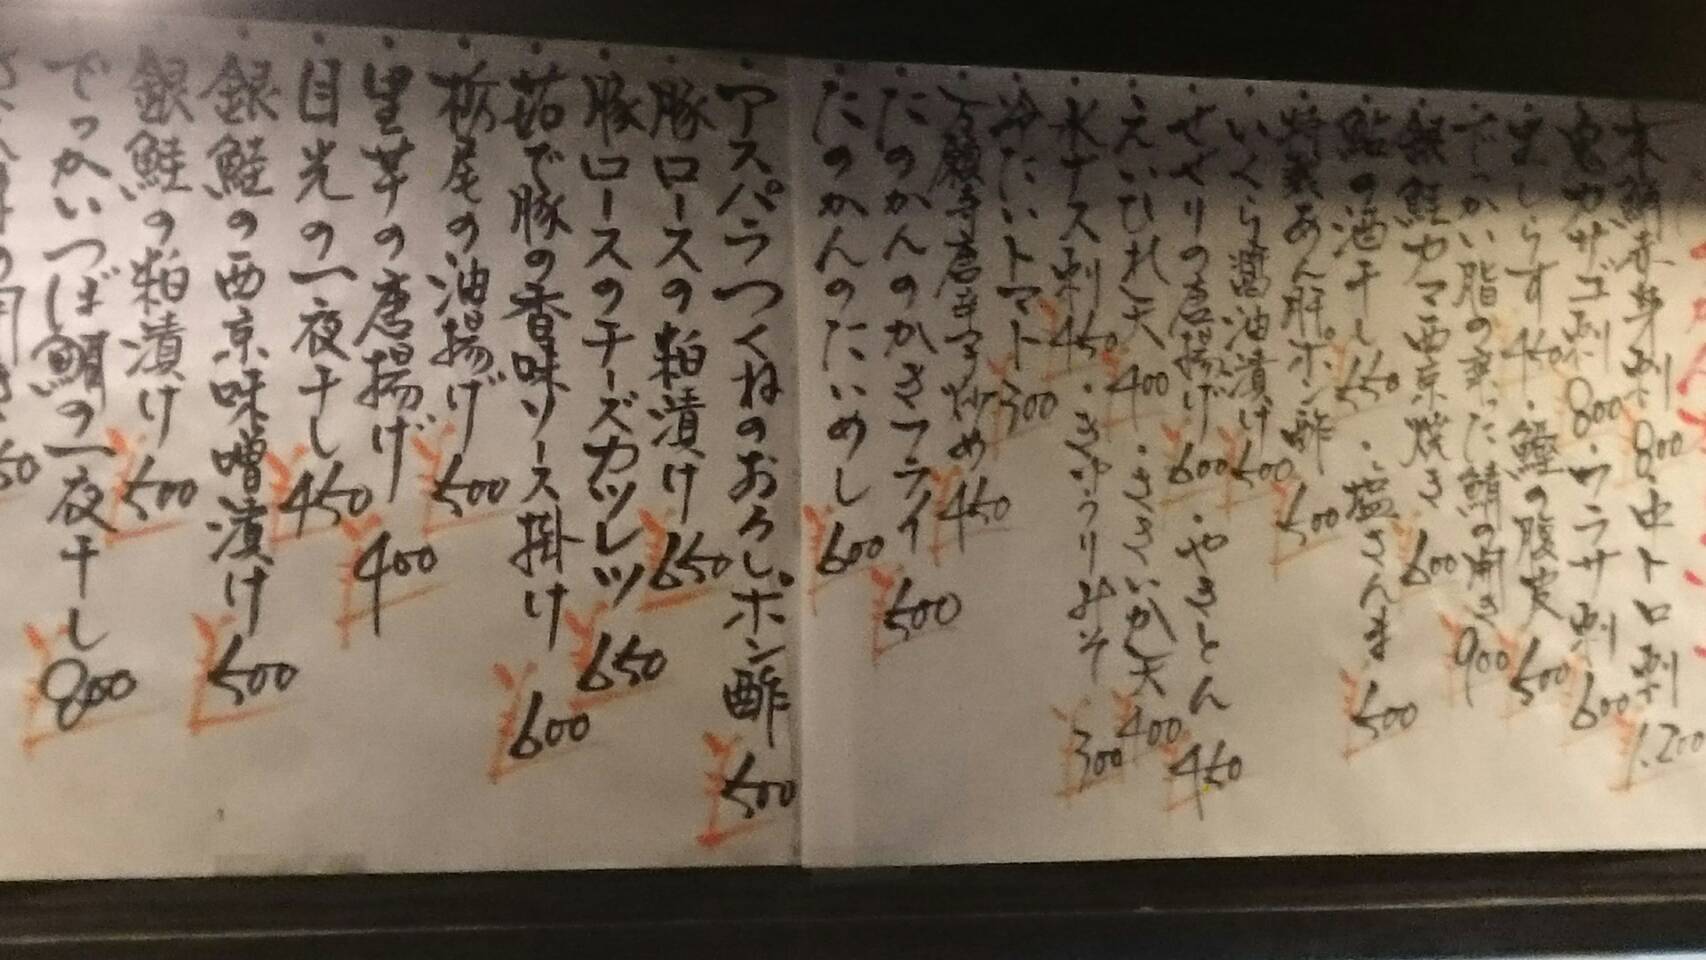 本鮪赤身刺 800・中トロ刺 1,200
鬼カサゴ刺 800・ワラサ刺 600
生しらす 450・鰹の腹皮 500
でっかい脂の乗った鯖の開き 900
銀鮭カマ西京焼き 600
鮎の酒干し 550・塩さんま 500
特製あん肝ポン酢 500
いくら醤油漬け 500
せせりの唐揚げ 600・やきとん 450
えいひれ天 400・さきいか天 400
水ナス刺 450・きゅうりみそ 300
冷たいトマト 300
万願寺唐辛子炒め 450
たのかんのかきフライ 500
たのかんのたいめし 600
アスパラつくねのおろしポン酢 500
豚ロースの粕漬け 650
豚ロースのチーズカツレツ 650
茹で豚の香味ソース掛け 600
栃尾の油揚げ 500
里芋の唐揚げ 400
目光の一夜干し 450
銀鮭の西京味噌漬け 500
銀鮭の粕漬け 500
でっかいつぼ鯛の一夜干し 800